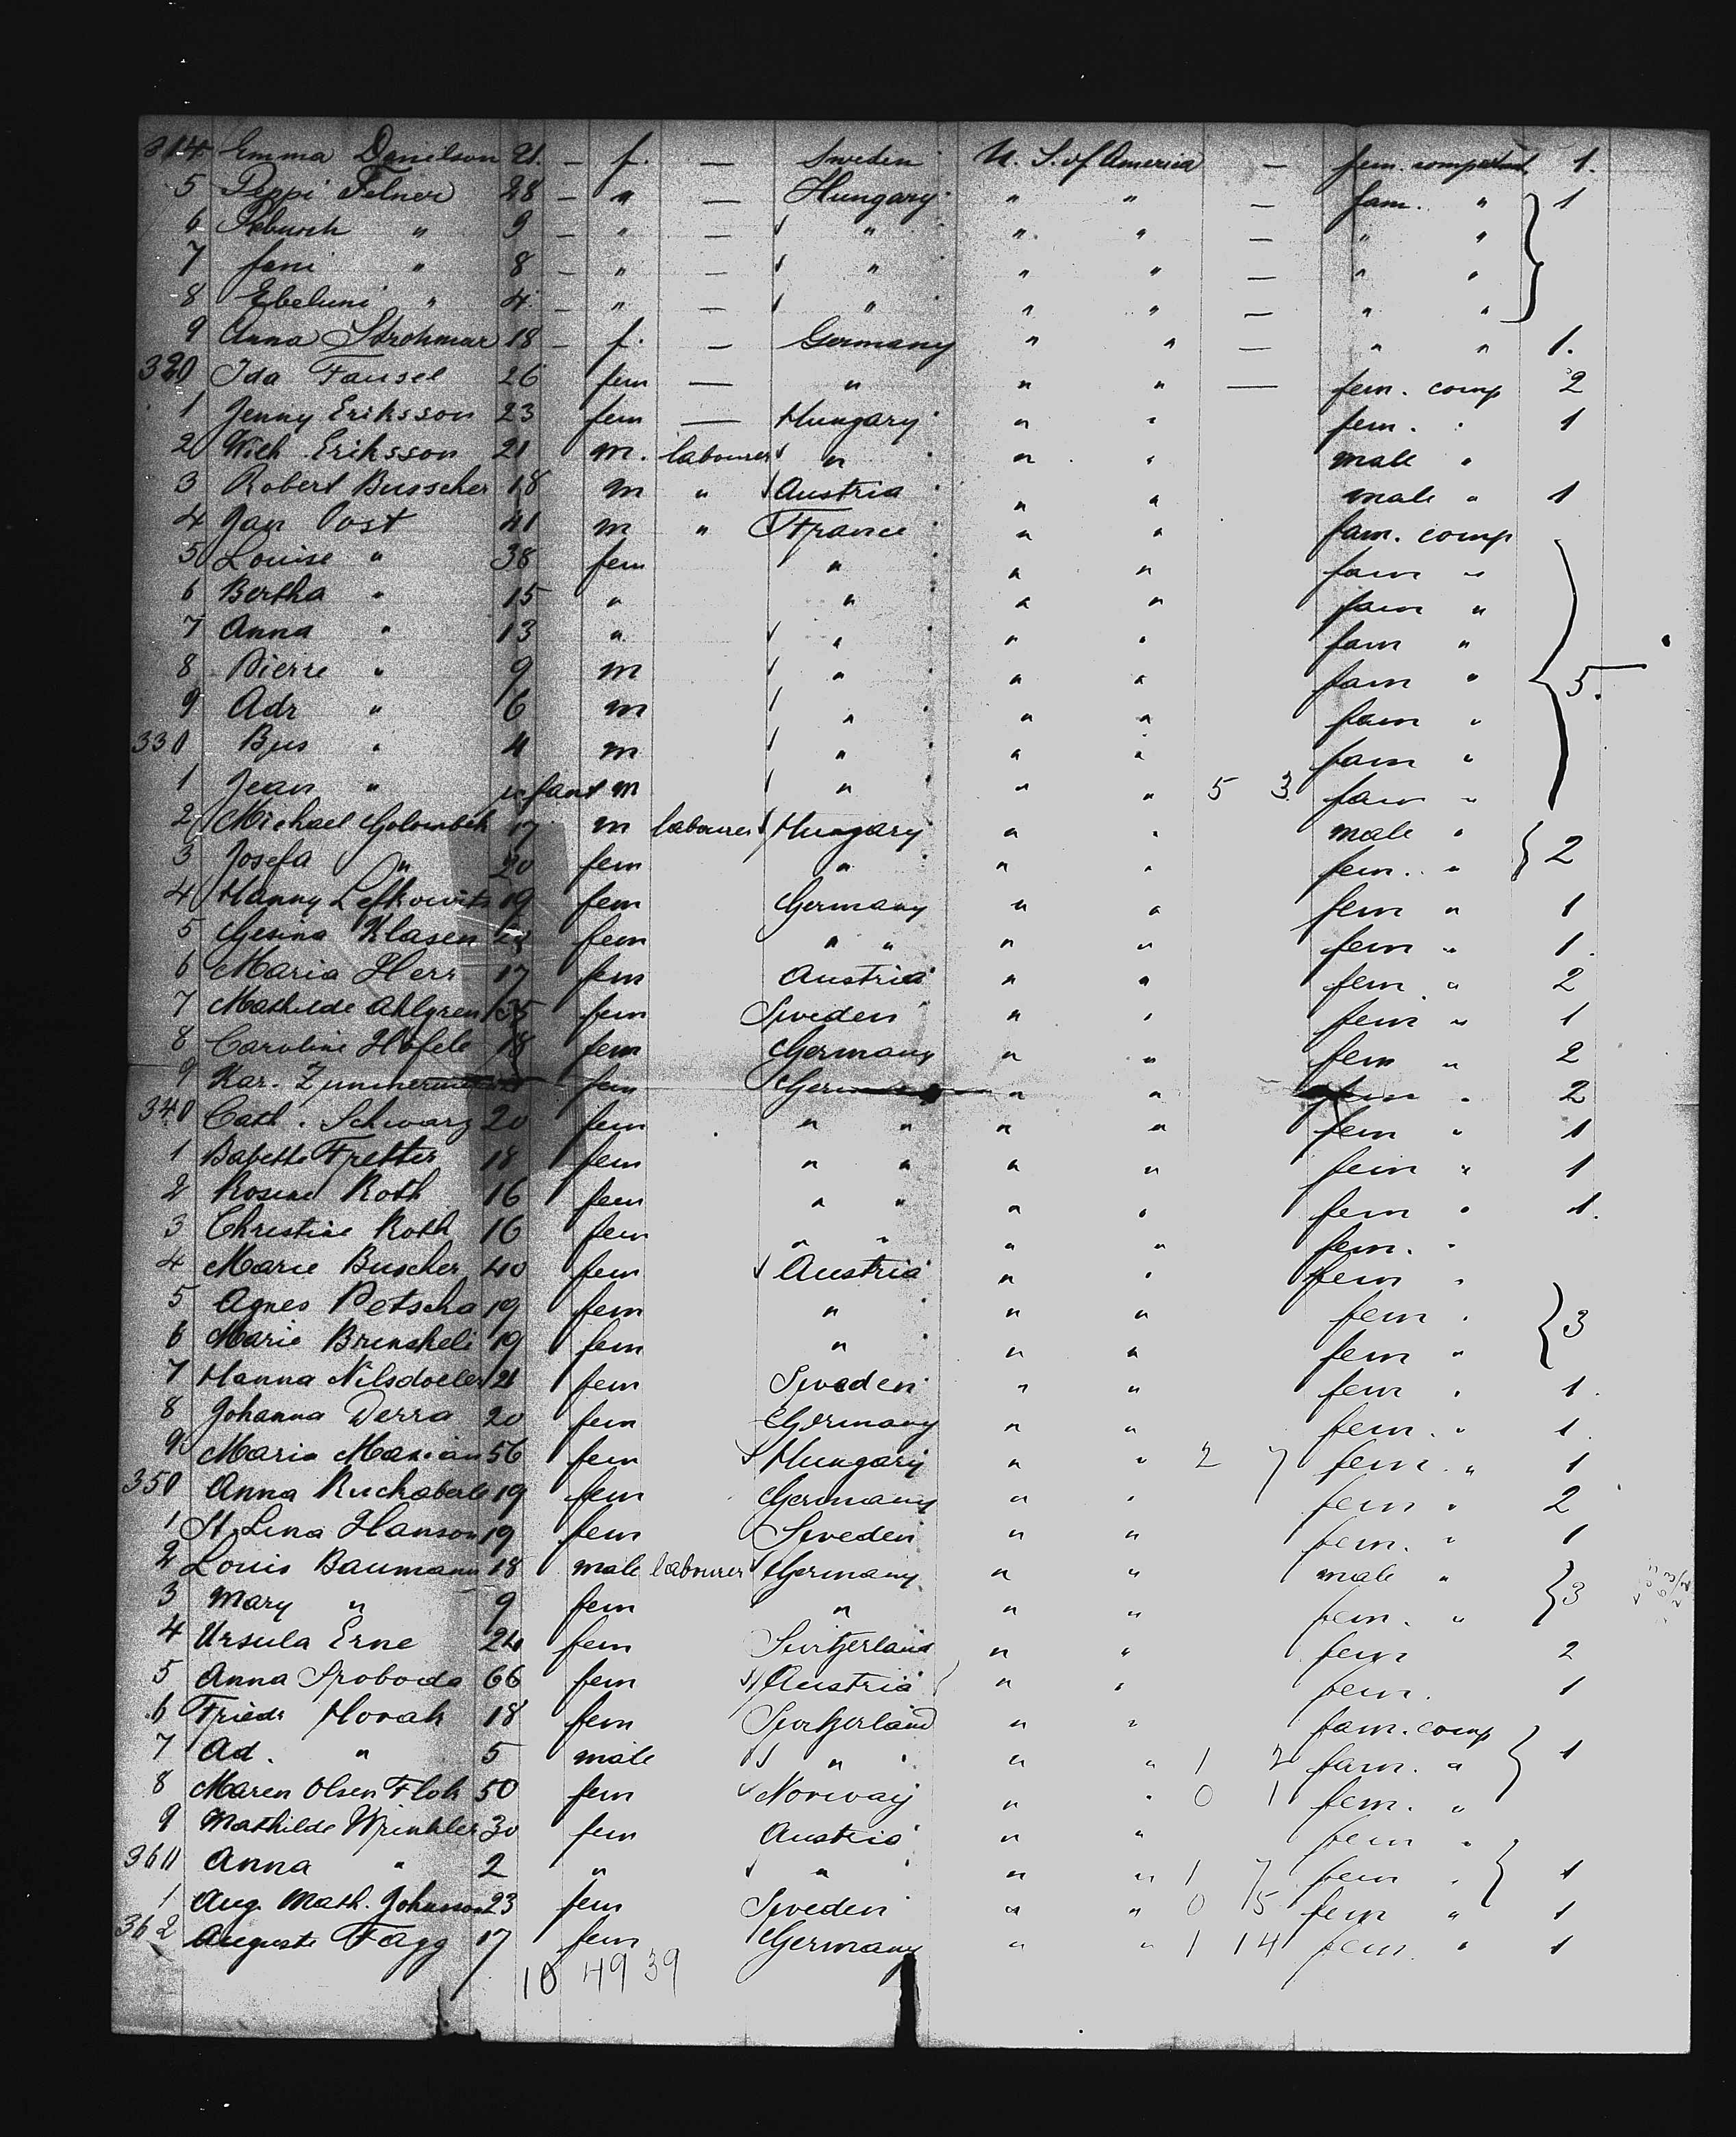 314 Emma Danilson 21. — f. — Sweden U. S. of America — fem. compartment 1.
5 Peppi Felner 28 — " — Hungary " " — fam. " 1
6 " 9 — " — " " " — " "
7 Jani " 8 — " — " " " — " "
8 " 4 — " — " " " — " "
9 Anna Strohmar 18 — f. — Germany " " — " " 1.
320 Ida Fausel 26 fem — " " " — fem. comp 2
1 Jenny Eriksson 23 fem — Hungary " " fem. " 1
2 Wilh. Eriksson 21 m. labourer " " " male "
3 Robert Busscher 18 m " Austria " " male " 1
4 Jan Post 41 m " France " " fam. comp
5 Louise " 38 fem " " " fam "
6 Bertha " 15 " " " " fam "
7 Anna " 13 " " " " fam "
8 Pierre " 9 m " " " fam " 5.
9 Adr " 6 m " " " fam "
330 Bus " 4 m " " " fam "
1 Jean " infant m " " " 5 3 fam "
2 Michael Golombek 17 m labourer Hungary " " male " 2
3 Josefa " 20 fem " " " fem. "
4 Hanny Lefkowitz 19 fem Germany " " fem " 1
5 Gesina Klasen fem " " " " fem " 1.
6 Maria Herr 17 fem Austria " " fem " 2
7 Mathilde Ahlgren 35 fem Sweden " " fem " 1
8 Caroline Hofele 18 fem Germany " " fem " 2
9 Kar. fem " " fem " 2
340 Cath. Schwarz 20 fem " " " " fem " 1
1 Babette Fretter 18 fem " " " " fem " 1
2 Rosine Roth 16 fem " " " " fem " 1.
3 Christine Roth 16 fem " " " " fem. "
4 Marie Buscher 40 fem Austria " " fem "
5 Agnes Petscha 19 fem " " " fem " 3
6 Marie Brinskeli 19 fem " " " fem "
7 Hanna Nilsdoeler 21 fem Sweden " " fem " 1.
8 Johanna Derra 20 fem Germany " " fem. " 1.
9 Maria Marian 56 fem Hungary " " 2 7 fem. " 1
350 Anna Ruchaberle 19 fem Germany " " fem " 2
1 St. Lina Hanson 19 fem Sweden " " fem. " 1
2 Louis Baumann 18 male labourer Germany " " male " 3
3 Mary " 9 fem " " " fem. "
4 Ursula Erne 24 fem Switzerland " " fem 2
5 Anna Sroboda 66 fem Austria " " fem. 1
6 Friedr Horak 18 fem Switzerland " " fam. comp 1
7 Ad. " 5 male " " " 1 2 fam. "
8 Maren Olsen Floh 50 fem Norway " " 0 1 fem. "
9 Mathilde Winkler 30 fem Austria " " fem "
360 Anna " 2 " " " " 1 7 fem " 1
1 Aug. Math. Johnson 23 fem Sweden " " 0 5 fem " 1
362 Auguste Fagg 17 fem Germany " " 1 14 fem. " 1
10 49 39